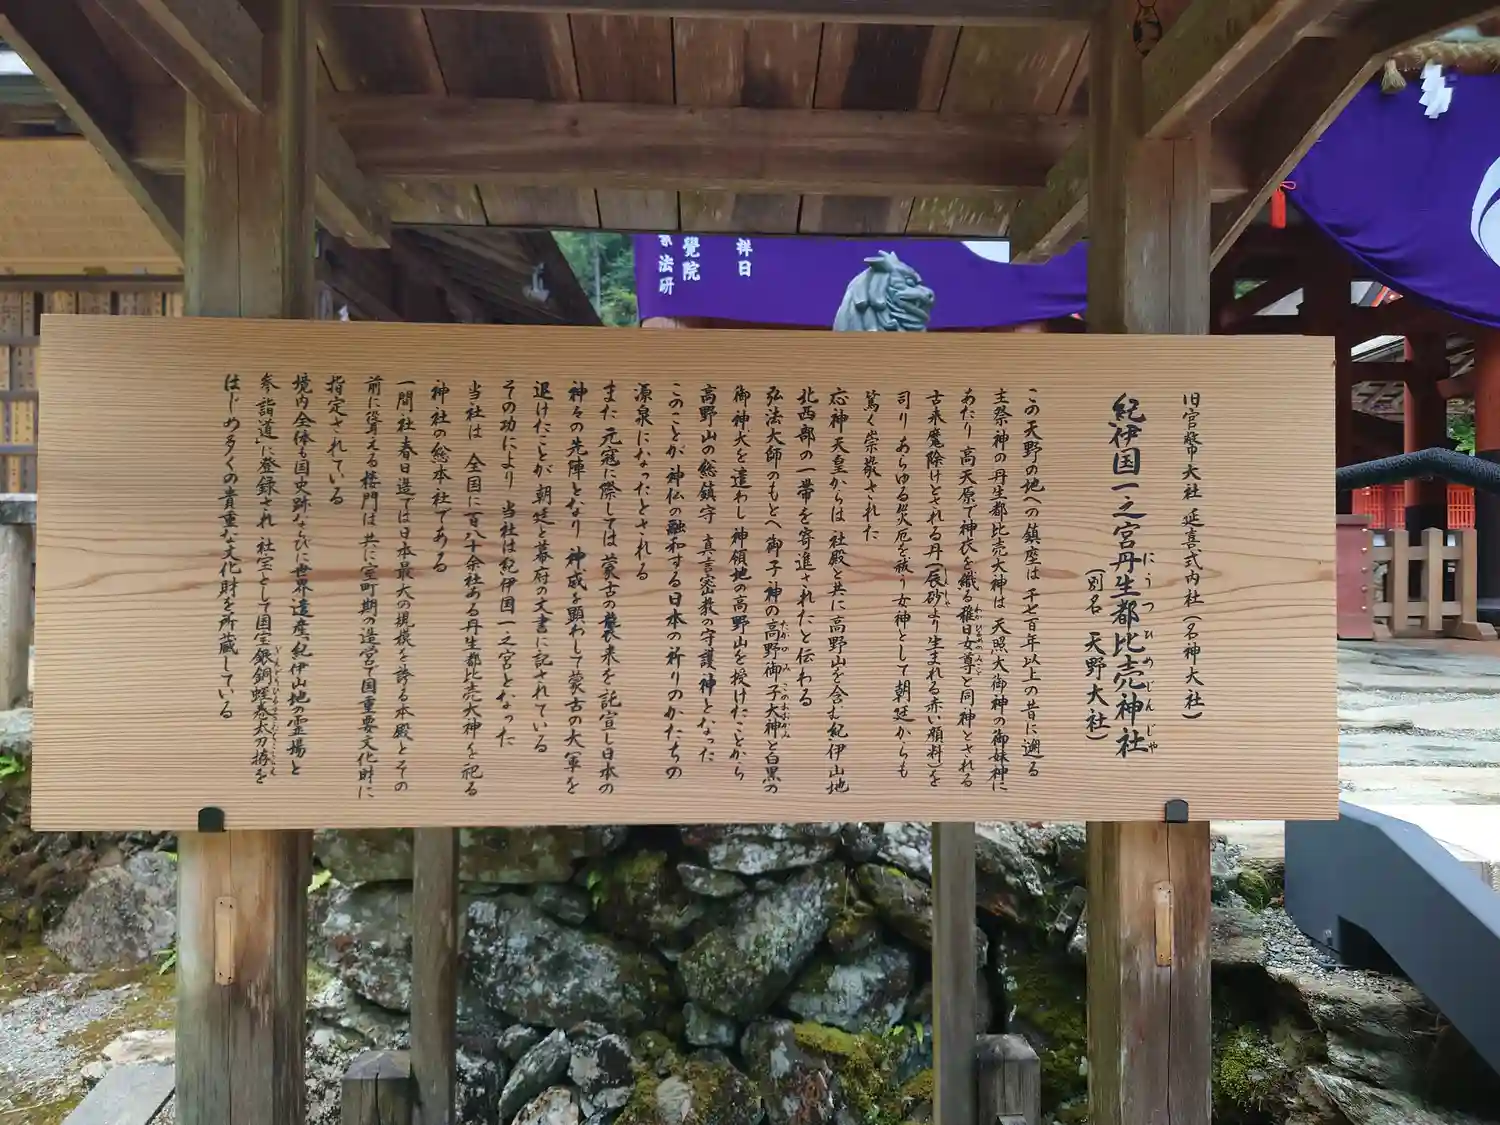 旧官幣大社 延喜式内社(名神大社)
紀伊国一之宮丹生都比売神社
にうつひめじんじゃ
(別名 天野大社)
この天野の地への鎮座は 千七百年以上の昔に遡る
主祭神の丹生都比売大神は 天照大御神の御妹神に
あたり 高天原で神衣を織る稚日女尊と同神とされる
わかひるめのみこと
古来魔除けとされる丹(辰砂より生まれる赤い顔料)を
司り あらゆる災厄を祓う女神として朝廷からも
篤く崇敬された
応神天皇からは 社殿と共に高野山を含む紀伊山地
北西部の一帯を寄進されたと伝わる
弘法大師のもとへ御子神の高野御子大神と白黒の
たかのみこのおおかみ
御神犬を遣わし神領地の高野山を授けたことから
高野山の総鎮守 真言密教の守護神となった
このことが神仏の融和する日本の祈りのかたちの
源泉になったとされる
また元寇に際しては 蒙古の襲来を託宣し日本の
神々の先陣となり 神威を顕わして蒙古の大軍を
退けたことが 朝廷と幕府の文書に記されている
その功により 当社は紀伊国一之宮となった
当社は 全国に百八十余社ある丹生都比売大神を祀る
神社の総本社である
一間社春日造では日本最大の規模を誇る本殿とその
前に聳える楼門は共に室町期の造営で国重要文化財に
指定されている
境内全体も国史跡ならびに世界遺産「紀伊山地の霊場と
参詣道」に登録され 社宝として国宝銀銅蛭巻太刀拵を
はじめ多くの貴重な文化財を所蔵している
祥日
覺院
法研